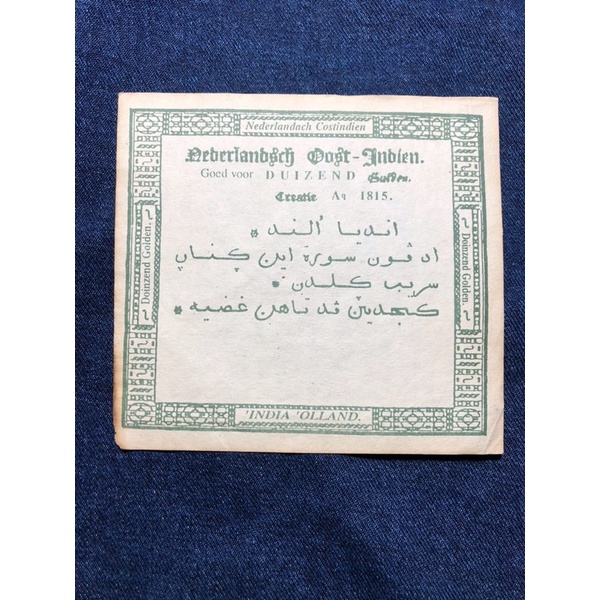 Nederlandach Costindien
Nederlandsch Oost-Indien.
Goed voor DUIZEND Gulden.
Creatie Aº 1815.
انديا ألند *
اد ڤون سورة اين
سريب كلدن *
Doinzend Golden.
Doinzend Golden.
'INDIA 'OLLAND.